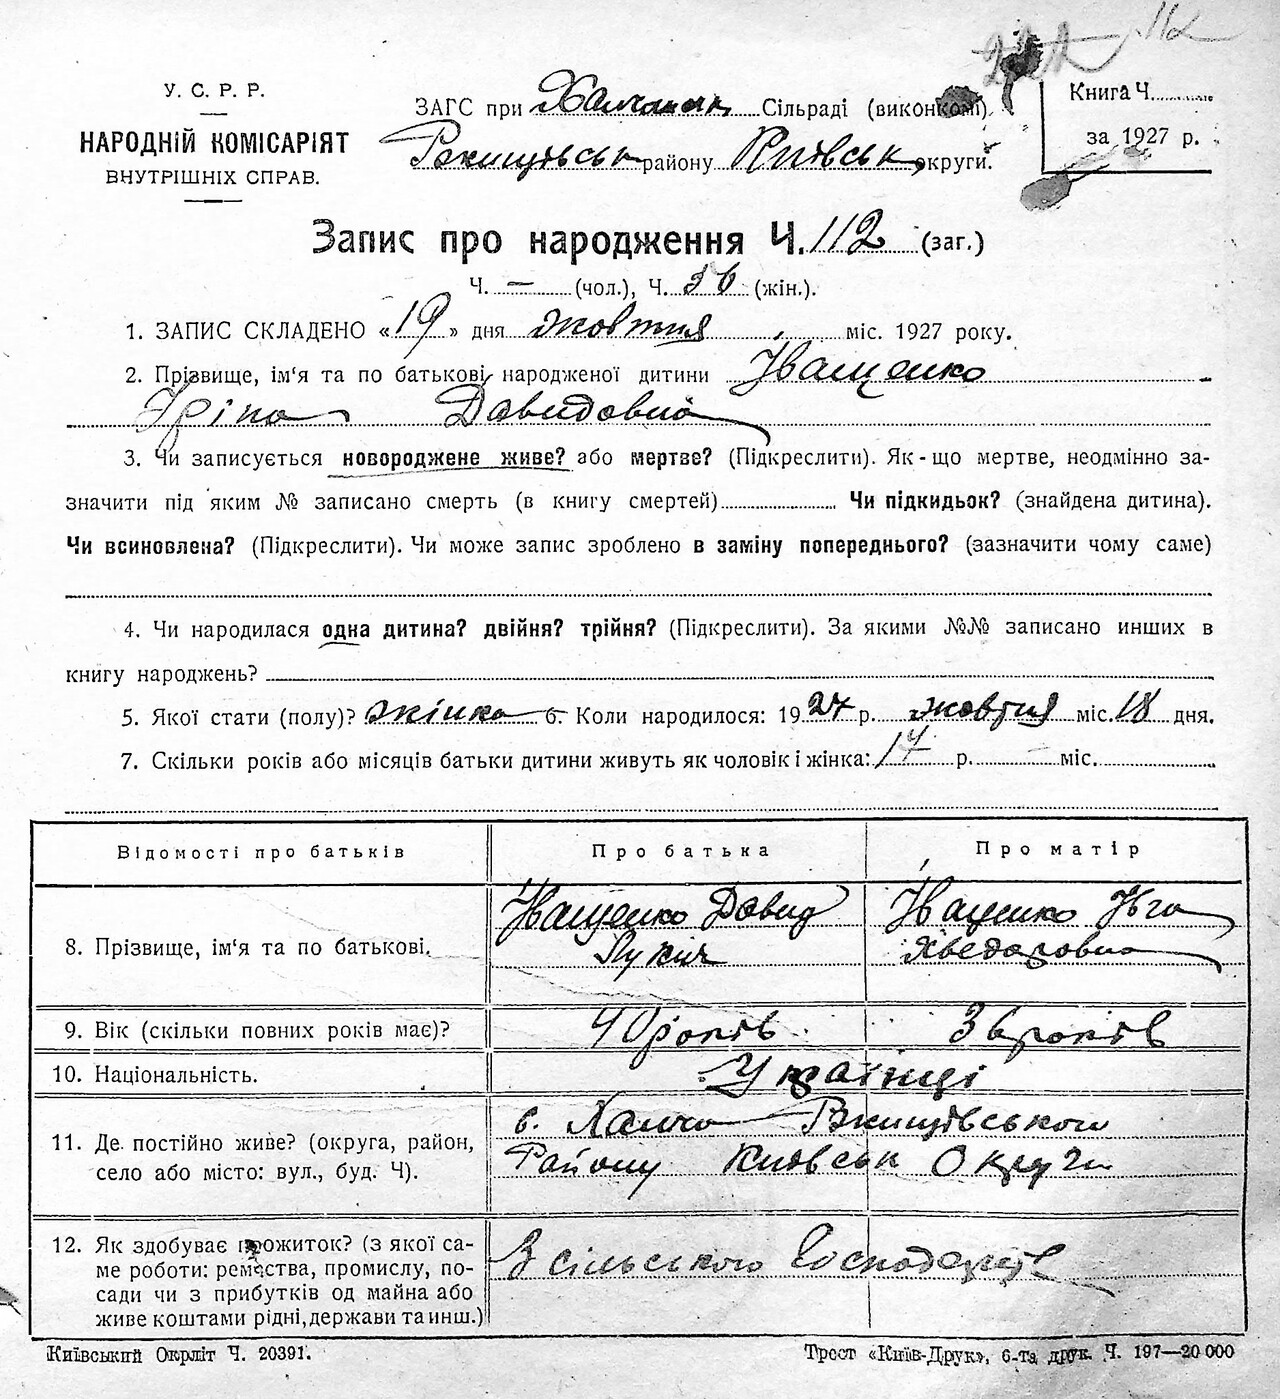 112
У. С. Р. Р.
НАРОДНІЙ КОМІСАРІЯТ
ВНУТРІШНІХ СПРАВ.
ЗАГС при Халчанск Сільраді (виконкомі).
Ржищівськ району Київськ округи.
Книга Ч.
за 1927 р.
Запис про народження Ч. 112 (заг.)
Ч. — (чол.), Ч. 56 (жін.).
1. ЗАПИС СКЛАДЕНО «19» дня жовтня міс. 1927 року.
2. Прізвище, ім'я та по батькові народженої дитини Іващенко
Ірина Давидовна
3. Чи записується новороджене живе? або мертве? (Підкреслити). Як-що мертве, неодмінно за-
значити під яким № записано смерть (в книгу смертей) Чи підкидьок? (знайдена дитина).
Чи всиновлена? (Підкреслити). Чи може запис зроблено в заміну попереднього? (зазначити чому саме)
4. Чи народилася одна дитина? двійня? трійня? (Підкреслити). За якими №№ записано инших в
книгу народжень?
5. Якої стати (полу)? жінка 6. Коли народилося: 1927 р. жовтня міс. 18 дня.
7. Скільки років або місяців батьки дитини живуть як чоловік і жінка: 17 р. — міс.
Відомості про батьків Про батька Про матір
8. Прізвище, ім'я та по батькові. Іващенко Давид Іващенко
Лукич Хведоровна
9. Вік (скільки повних років має)? 40 років 36 років
10. Національність. Українці
11. Де постійно живе? (округа, район, с. Халча Ржищівського
село або місто: вул., буд. Ч). Району Київськ Округи
12. Як здобуває прожиток? (з якої са-
ме роботи: ремества, промислу, по- З сільського Господарств
сади чи з прибутків од майна або
живе коштами рідні, держави та инш.)
Київський Окрліт Ч. 20391. Трест «Київ-Друк», 6-та друк. Ч. 197—20 000